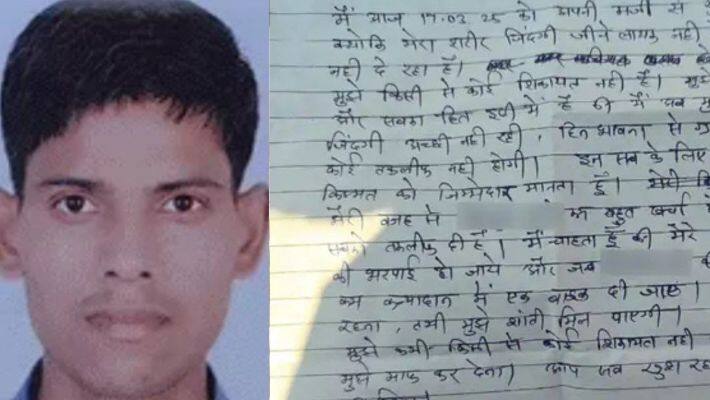 मैं आज 17.03.25 को अपनी मर्जी से
क्योंकि मेरा शरीर जिंदगी जीने लायक नही
नही दे रहा है।
मुझे किसी से कोई शिकायत नही है। मुझे
और सबका हित इसी में है की मैं
जिंदगी अच्छी नही रही, हिन भावना से
कोई तकलीफ नही होगी। इन सब के लिए
किस्मत को जिम्मेदार मानता हूँ। मेरी
मेरी वजह से का बहुत खर्चा
सबको तकलीफ दी है। मैं चाहता हूँ की मेरे
की भरपाई हो जाये और जब की
कन्यादान में एक बाइक दी जाए।
रहना, तभी मुझे शांति मिल पाएगी।
मुझे कभी किसी से कोई शिकायत नही
मुझे माफ कर देना। आप सब खुश रह